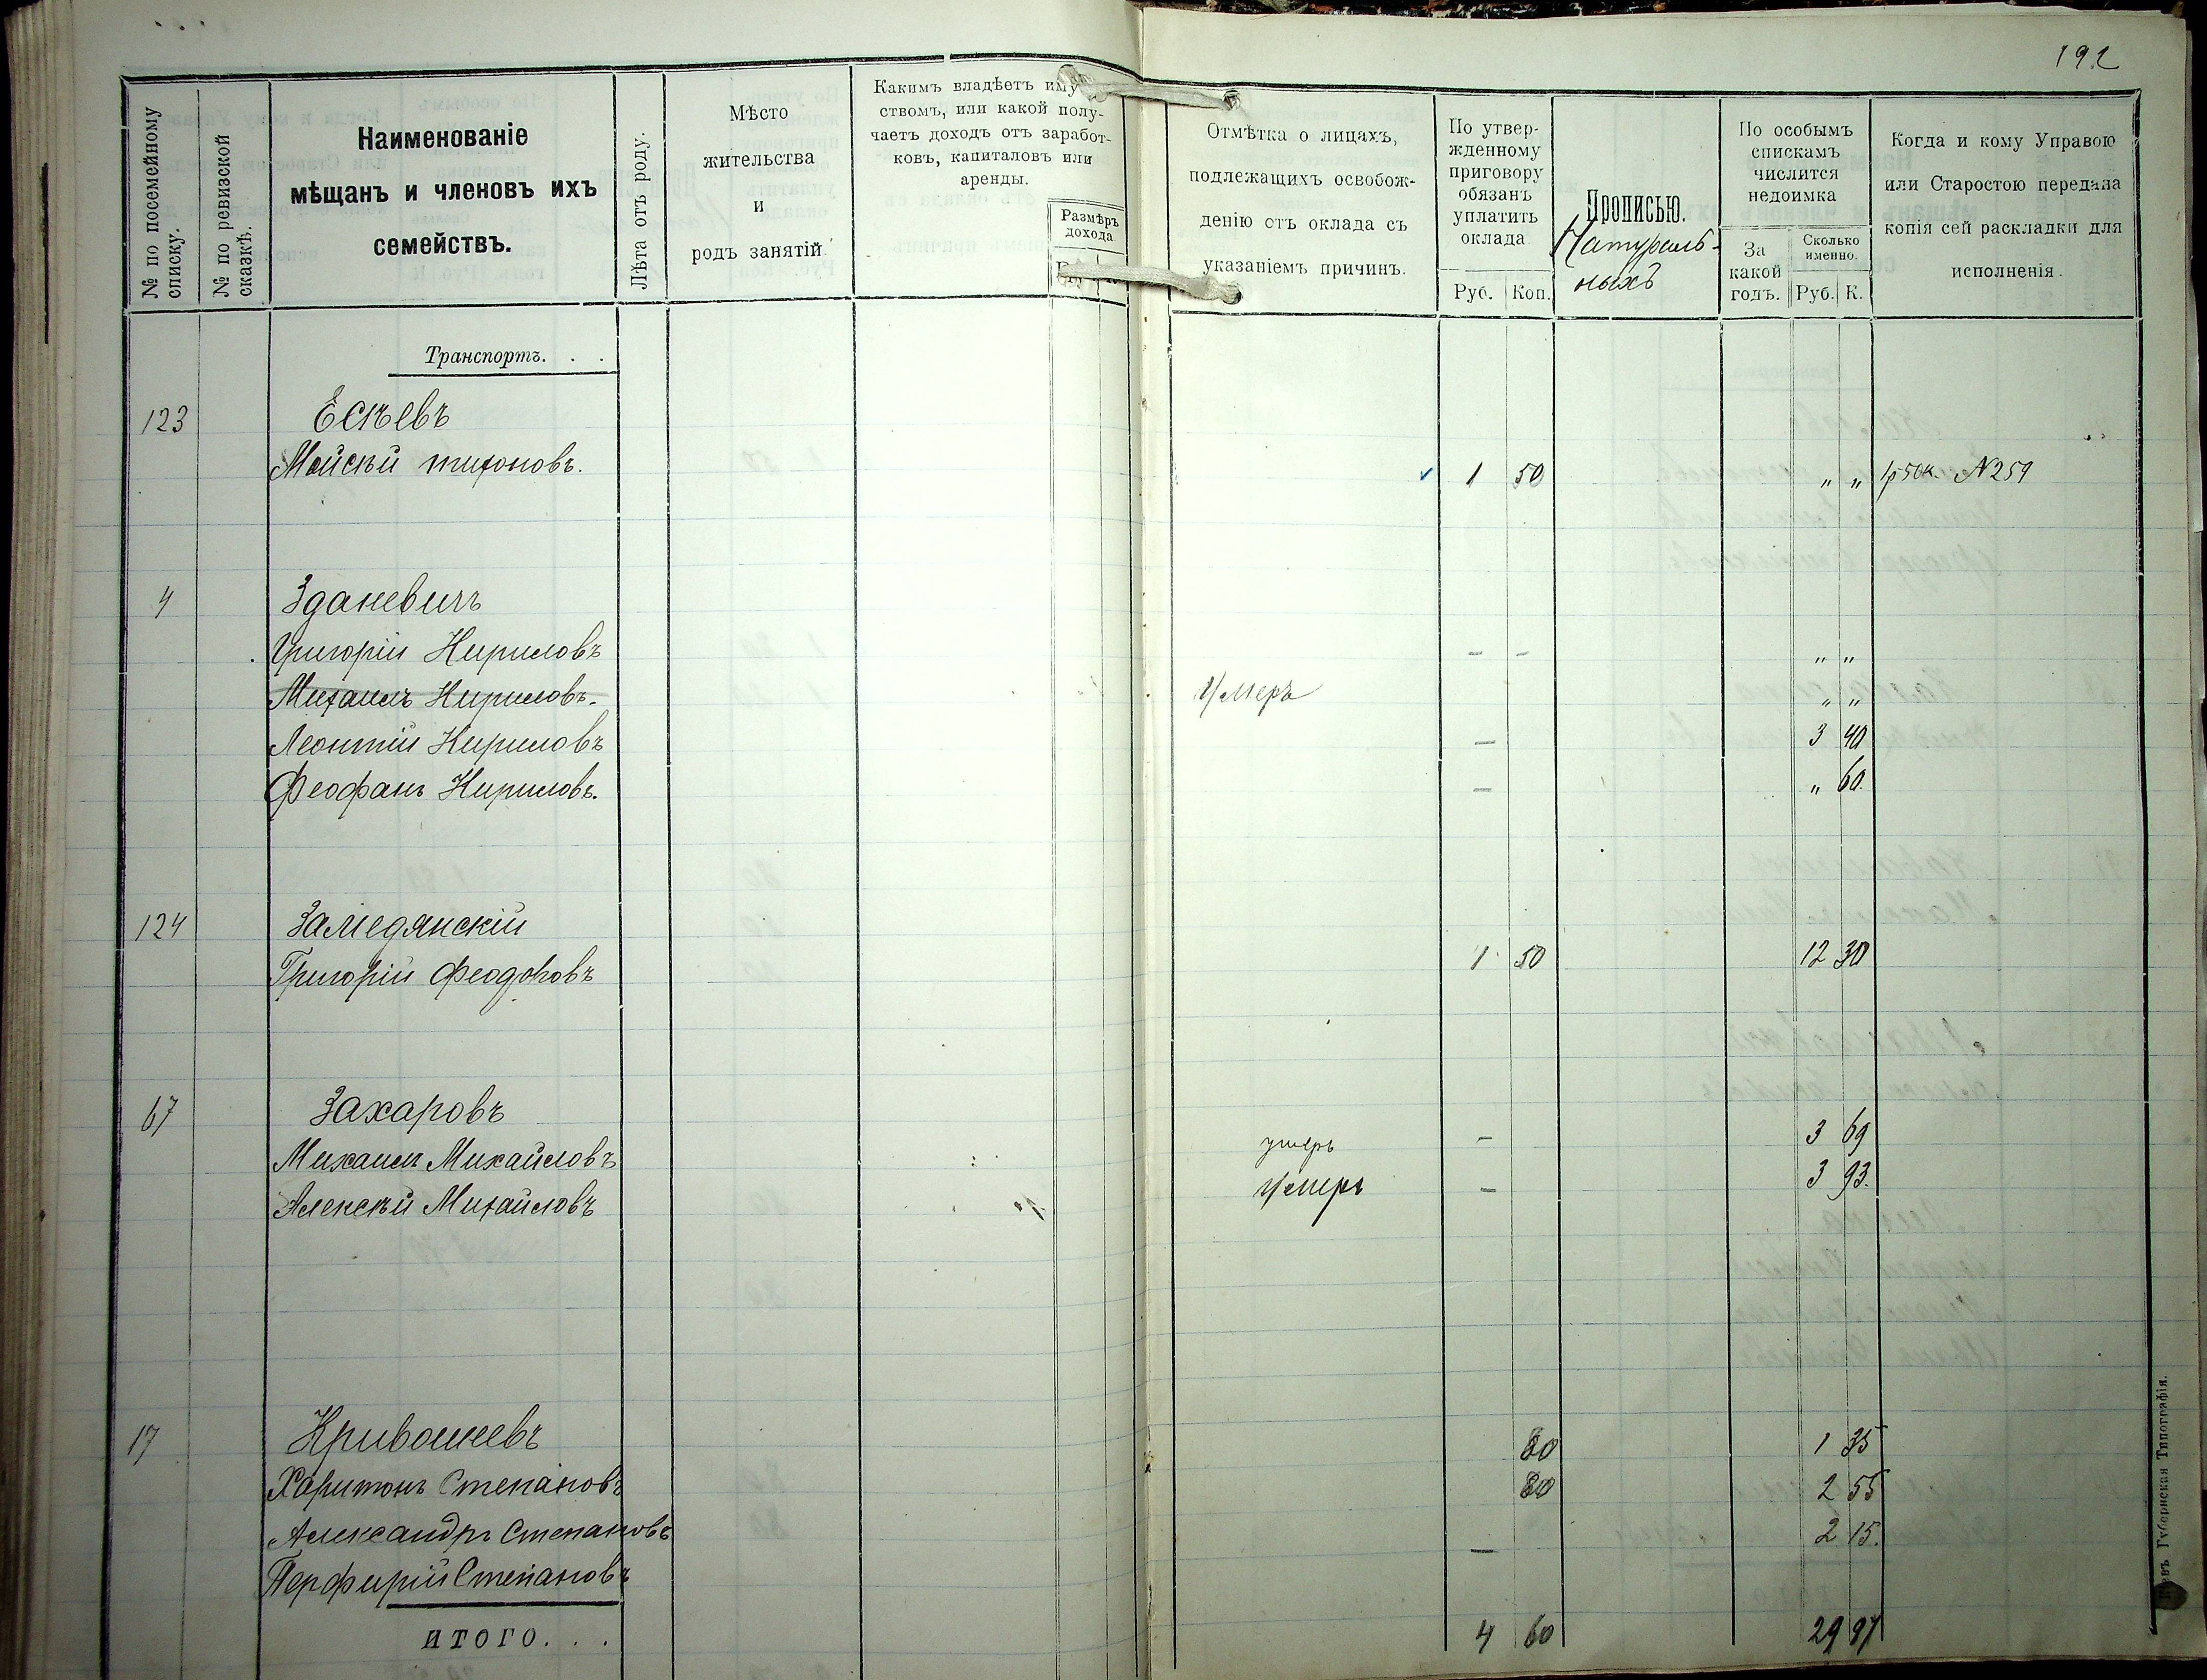 192
№ по посемейному списку.
№ по ревизской сказкѣ.
Наименованіе
мѣщанъ и членовъ ихъ
семействъ.
Лѣта отъ роду.
Мѣсто
жительства
и
родъ занятій
Какимъ владѣетъ иму
ствомъ, или какой полу-
чаетъ доходъ отъ заработ-
ковъ, капиталовъ или
аренды.
Размѣръ
дохода
Отмѣтка о лицахъ,
подлежащихъ освобож-
денію отъ оклада съ
указаніемъ причинъ.
По утвер-
жденному
приговору
обязанъ
уплатить
оклада
Руб. Коп.
Прописью.
Натураль-
ныхъ
По особымъ
спискамъ
числится
недоимка
За
какой
годъ.
Сколько
именно.
Руб. К.
Когда и кому Управою
или Старостою передана
копія сей раскладки для
исполненія.
Транспортъ. . .
123 Есѣевъ
Мойсѣй тихоновъ. 1 50 " " 1р50к. N259
4 Зданевичъ
Григорій Кириловъ - - " "
Михаилъ Кириловъ. Умеръ " "
Леонтій Кириловъ - 3 40
Феофанъ Кириловъ. - " 60.
124 Замедянскій
Григорій Феодоровъ 1 50 12 30
67 Захаровъ
Михаилъ Михайловъ умеръ - 3 69
Алексѣй Михайловъ Умеръ - 3 93.
17 Кривошеевъ
Харитонъ Степановъ 80 1 35
Александръ Степановъ 80 2 55
Перфирій Степановъ - 2 15.
ИТОГО. . . 4 60 29 97
евъ Губернская Типографія.